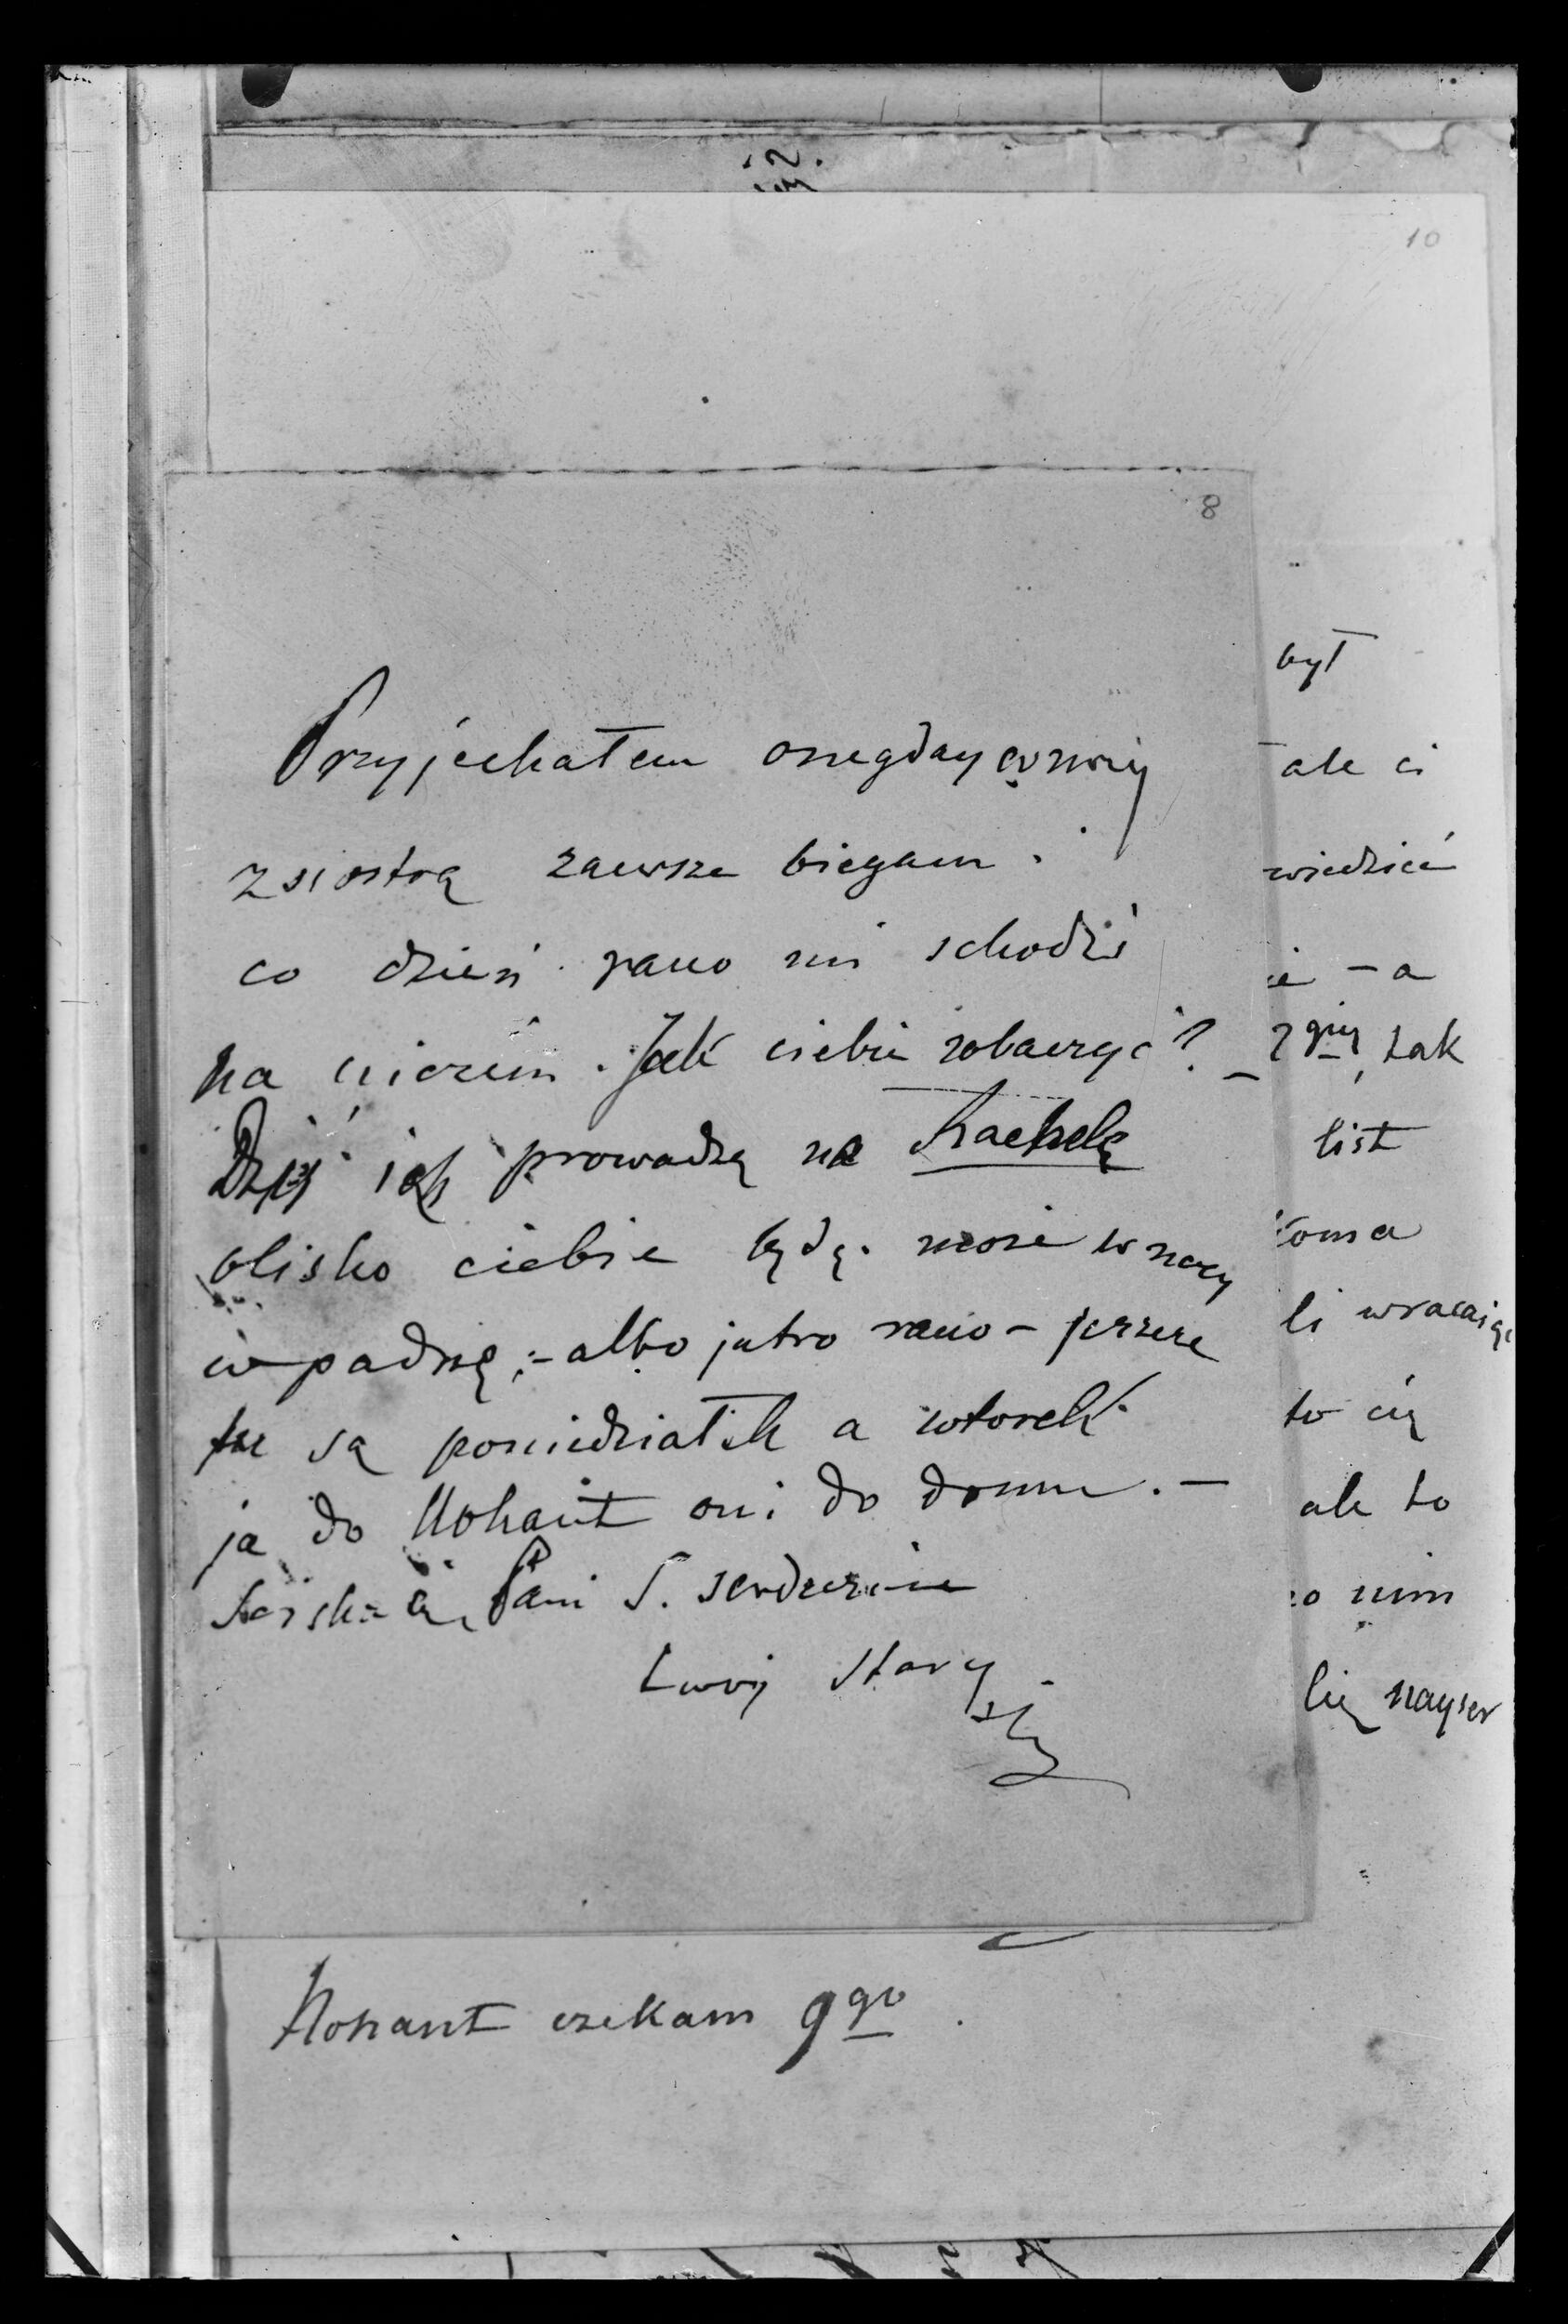 10
8
Przyjechałem onegday
z siostrą zawsze biegam.
co dzień rano mi schodzi
na niczem. Jak ciebie zobaczyć?
Dziś ich prowadzę na Rachelę
blisko ciebie będę. może w nocy
wpadnę; - albo jutro rano - jeszcze
tu są poniedziałek a wtorek
ja do Nohant oni do domu. -
Ściskam cię, Pani S. serdecznie
twój stary
był
ale ci
wiedzieć
ie - a
tak
list
toma
li wracając
to cię
ale to
o nim
lię nayser
Nohant czekam 9go.